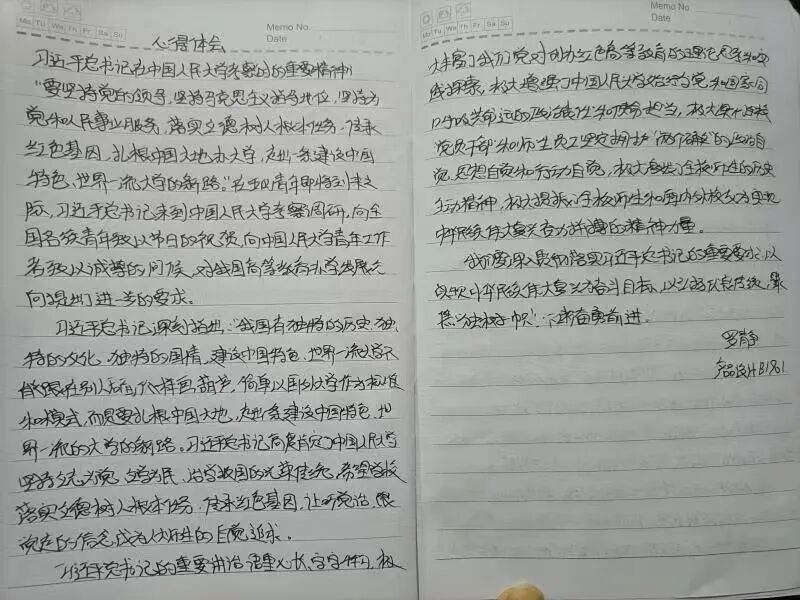 Memo No.
Mo Tu We Th Fr Sa Su
Date
心得体会
习近平总书记在中国人民大学考察时的重要精神
"要坚持党的领导,坚持马克思主义指导地位,坚持为
党和人民事业服务,落实立德树人根本任务,传承
红色基因,扎根中国大地办大学,走出一条建设中国
特色、世界一流大学的新路。"在五四青年节即将到来之
际,习近平总书记来到中国人民大学考察调研,向全
国各族青年致以节日的祝贺,向中国人民大学青年工作
者致以诚挚的问候,对我国高等教育办学发展方
向提出了进一步的要求。
习近平总书记深刻指出:"我国有独特的历史、独
特的文化、独特的国情,建设中国特色、世界一流大学不
能跟在别人后面依样画葫芦,简单以国外大学作为标准
和模式,而是要扎根中国大地,走出一条建设中国特色、世
界一流的大学的新路。习近平总书记高度肯定了中国人民大学
坚持立学为党、立学为民、治学报国的光荣传统,希望学校
落实立德树人根本任务,传承红色基因,让听党话、跟
党走的信念成为人大师生的自觉追求。
习近平总书记的重要讲话语重心长,字字千钧,极
Memo No.
Mo Tu We Th Fr Sa Su
Date
大丰富了我们党对创办红色高等教育的理论思考和实
线探索,极大增强了中国人民大学始终与党和国家同
呼吸共命运的政治责任和使命担当,极大坚定全校
党员干部和师生员工坚定拥护"两个确立"的政治自
觉、思想自觉和行动自觉,极大激发了全校师生的历史
主动精神,极大提振了全校师生和海内外校友为实现
中华民族伟大复兴奋力拼搏的精神力量。
我们要深入贯彻落实习近平总书记的重要要求,以
实现中华民族伟大复兴为奋斗目标,以
"独树一帜":奋勇前进.
罗静
B1961